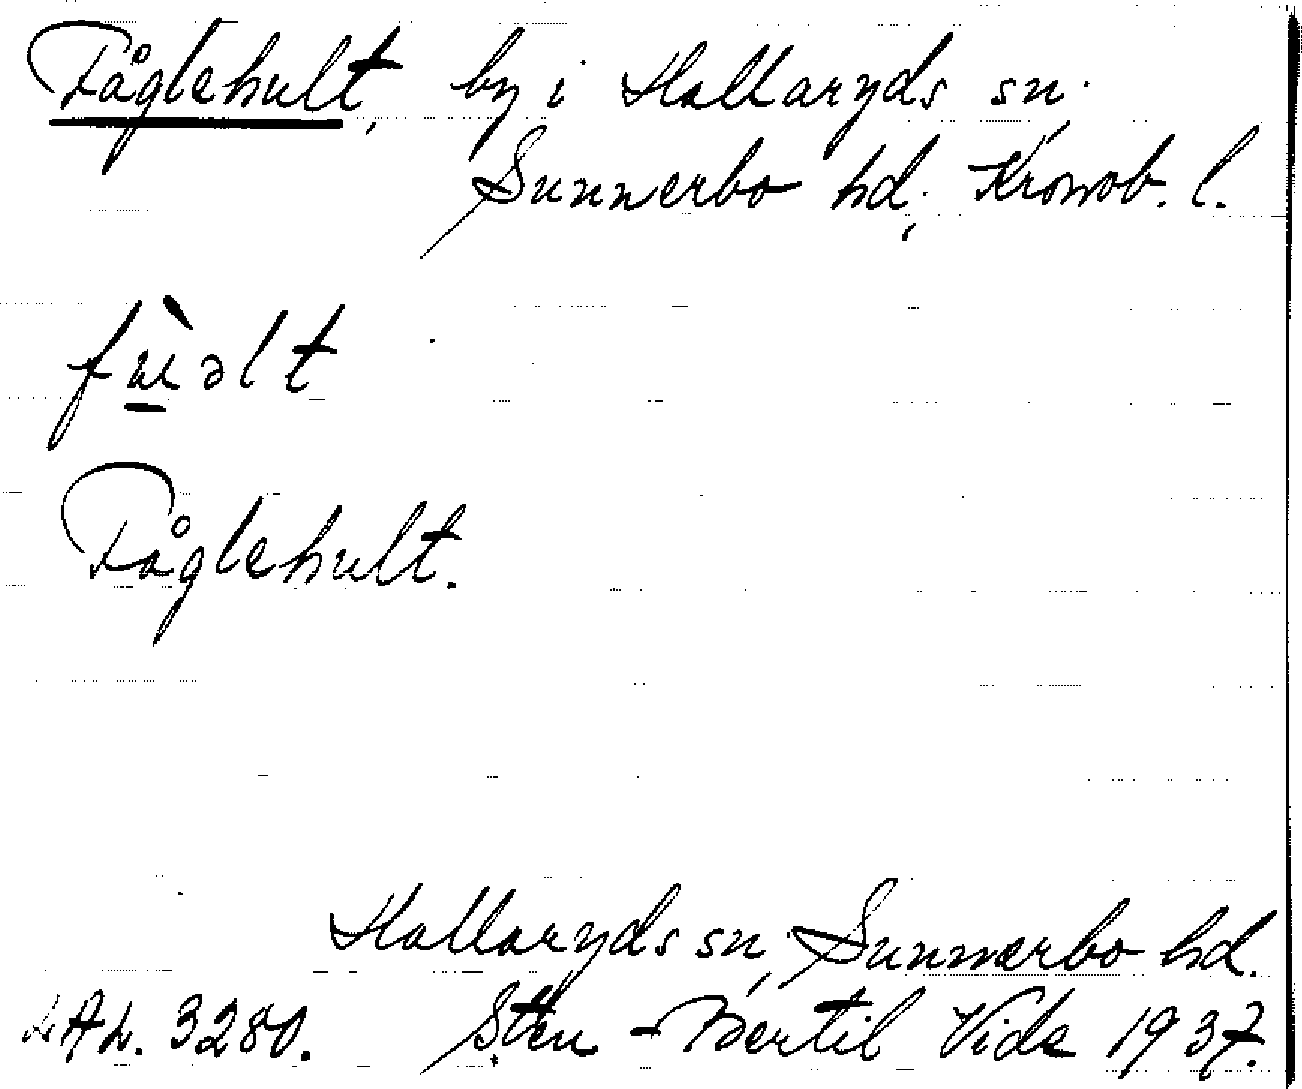 Fåglehult, by i Hallaryds sn.
Sunnerbo hd., Kronob. l.
Fåglehult.
Hallaryds sn, Sunnerbo hd.
LAL. 3280. Sten-Bertil Vide 1937.